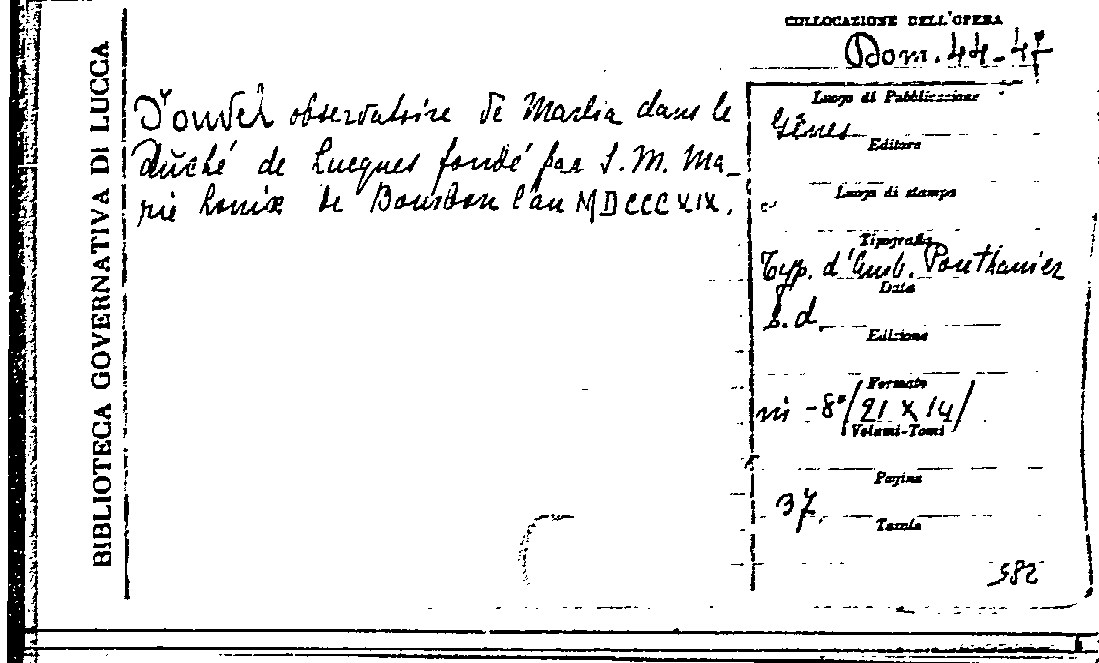 BIBLIOTECA GOVERNATIVA DI LUCCA
COLLOCAZIONE DELL'OPERA
Dom. 44-47
observatoire de Marlia dans le
Duché de Lucques fondé par S. M. Ma-
rie Louise de Bourbon l'an MDCCCXIX.
Luogo di Pubblicazione
Gênes
Editore
Luogo di stampa
Tipografia
Typ. d'Amb. Ponthenier
Data
s. d.
Edizione
Formato
in -8°/21 x 14/
Volumi-Tomi
Pagine
37.
Tavole
582